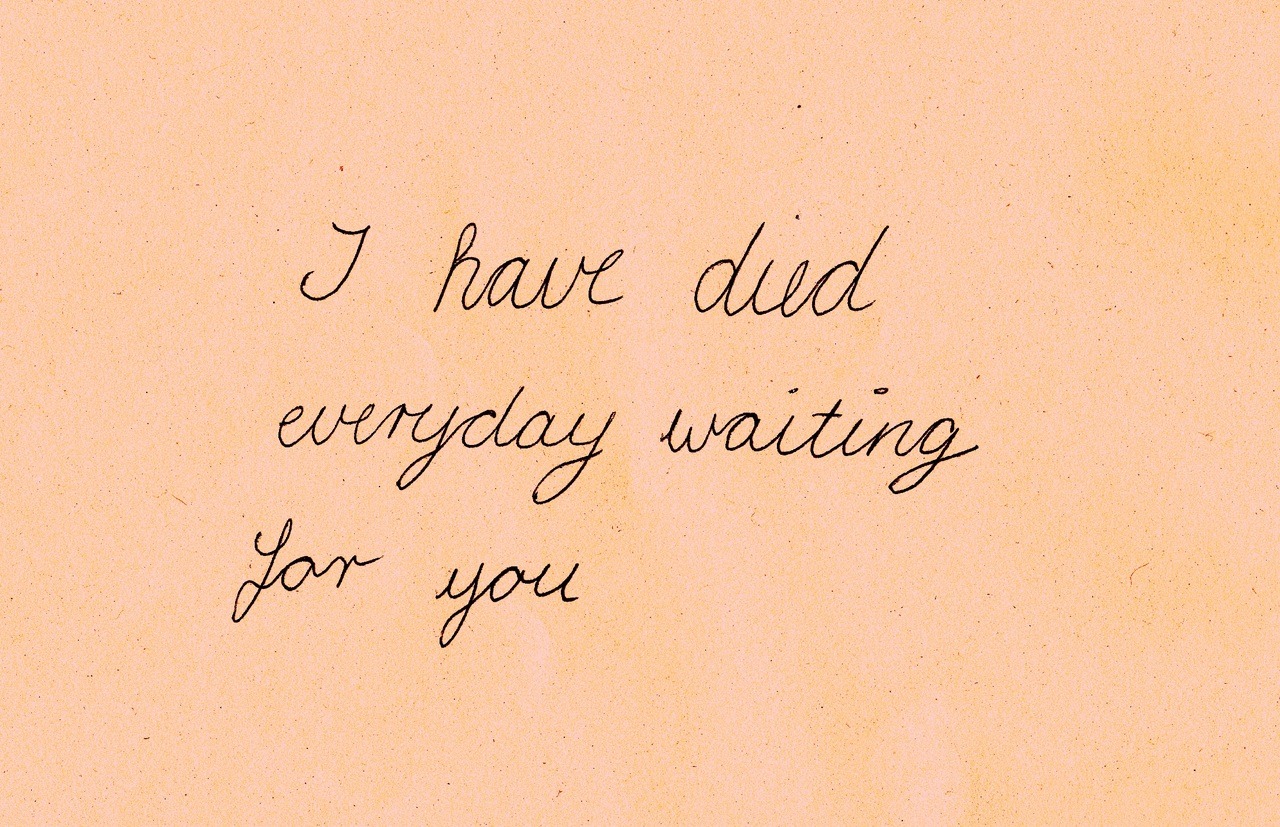 I have died
everyday waiting
for you